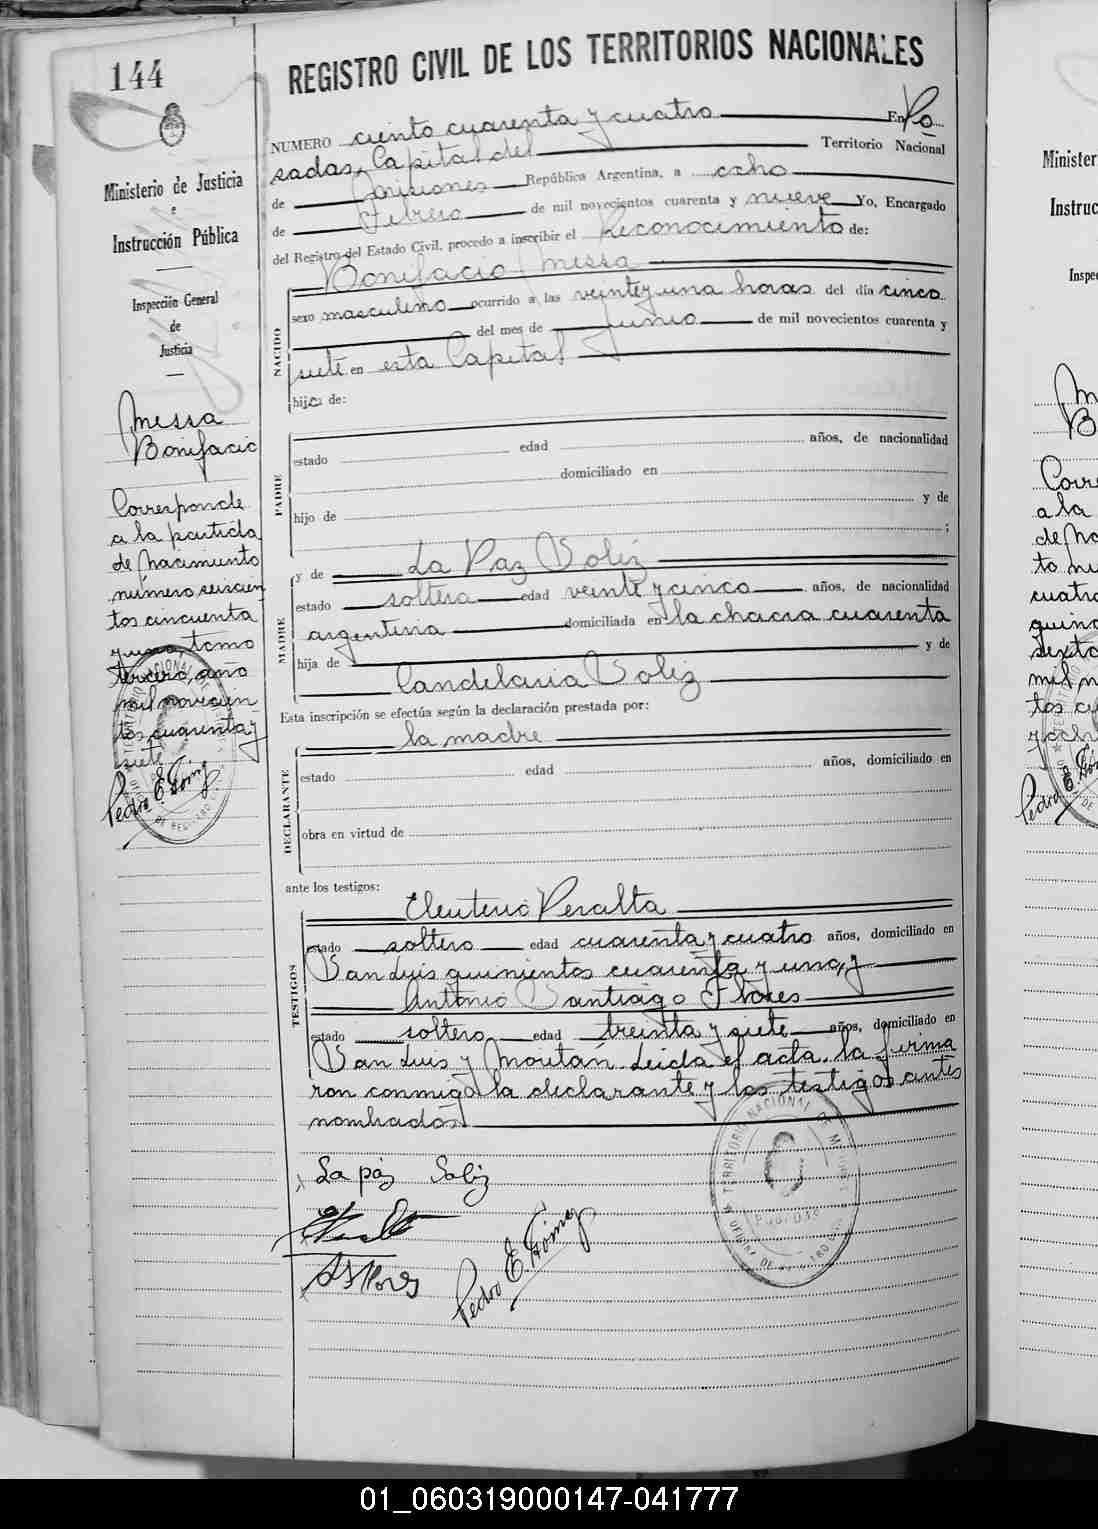 144
REGISTRO CIVIL DE LOS TERRITORIOS NACIONALES
Ministerio de Justicia
e
Instrucción Pública
Inspección General
de
Justicia
Messa
Bonifacio
Corresponde
a la partida
de Nacimiento
número seiscien
tos cincuenta
y una, tomo
tercero, año
mil novecien
tos cuarenta y
siete
Pedro E. Gómez
NUMERO ciento cuarenta y cuatro En Po
sadas, Capital del Territorio Nacional
de Misiones República Argentina, a ocho
de Febrero de mil novecientos cuarenta y nueve Yo, Encargado
del Registro del Estado Civil, procedo a inscribir el Reconocimiento de:
Bonifacio Messa
NACIDO
sexo masculino ocurrido a las veinte y una horas del día cinco
del mes de Junio de mil novecientos cuarenta y
siete en esta Capital
hijo de:
PADRE
estado edad años, de nacionalidad
domiciliado en
hijo de y de
;
y de La Paz Soliz
MADRE
estado soltera edad veinte y cinco años, de nacionalidad
argentina domiciliada en la chacra cuarenta
hija de y de
Candelaria Soliz
Esta inscripción se efectúa según la declaración prestada por:
la madre
DECLARANTE
estado edad años, domiciliado en
obra en virtud de
ante los testigos:
Eleuterio Peralta
TESTIGOS
estado soltero edad cuarenta y cuatro años, domiciliado en
San Luis quinientos cuarenta y uno, y
Antonio Santiago Flores
estado soltero edad treinta y siete años, domiciliado en
San Luis y Moután. Leída el acta, la firma
ron conmigo la declarante y los testigos antes
nombrados
La paz Soliz
A S Flores
Pedro E. Gómez
TERRITORIO NACIONAL DE MISIONES
POSADAS
OFICINA DE REGISTRO CIVIL
01_060319000147-041777